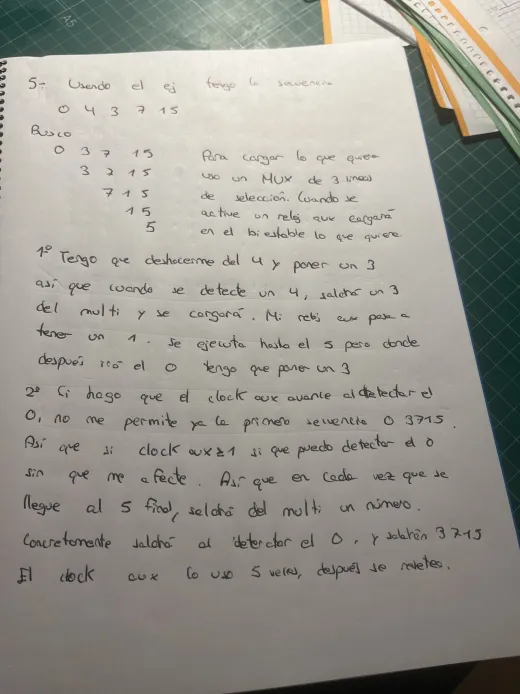 5- Usando el ej tengo la secuencia
0 4 3 7 1 5
Busco
0 3 7 1 5 Para cargar lo que quiera
3 7 1 5 uso un MUX de 3 lineas
7 1 5 de selección. Cuando se
1 5 active un reloj aux cargará
5 en el biestable lo que quiera
1º Tengo que deshacerme del 4 y poner un 3
así que cuando se detecte un 4, saldrá un 3
del multi y se cargará. Mi reloj aux pasa a
tener un 1. se ejecuta hasta el 5 pero donde
después irá el 0 tengo que poner un 3
2º Si hago que el clock aux avance al detectar el
0, no me permite ya la primera secuencia 0 3715.
Así que si clock aux≥1 si que puedo detectar el 0
sin que me afecte. Así que en cada vez que se
llegue al 5 final, saldrá del multi un número.
Concretamente saldrá al detectar el 0, y saldrán 3 7 1 5
El clock aux lo uso 5 veces, después se resetea.
A5